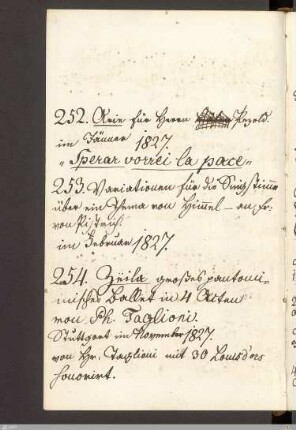 252. Arie für Herrn Pezold.
im Jänner 1827.
"Sperar vorrei la pace"
253. Variationen für die Singstimme
über ein Thema von Himmel – an Fr:
von Pistrich.
im Februar 1827.
254. Zeila, großes pantomi-
misches Ballet in 4 Akten
von Ph. Taglioni.
Stuttgart im November 1827.
von Hr. Taglioni mit 30 Louisdors
honorirt.